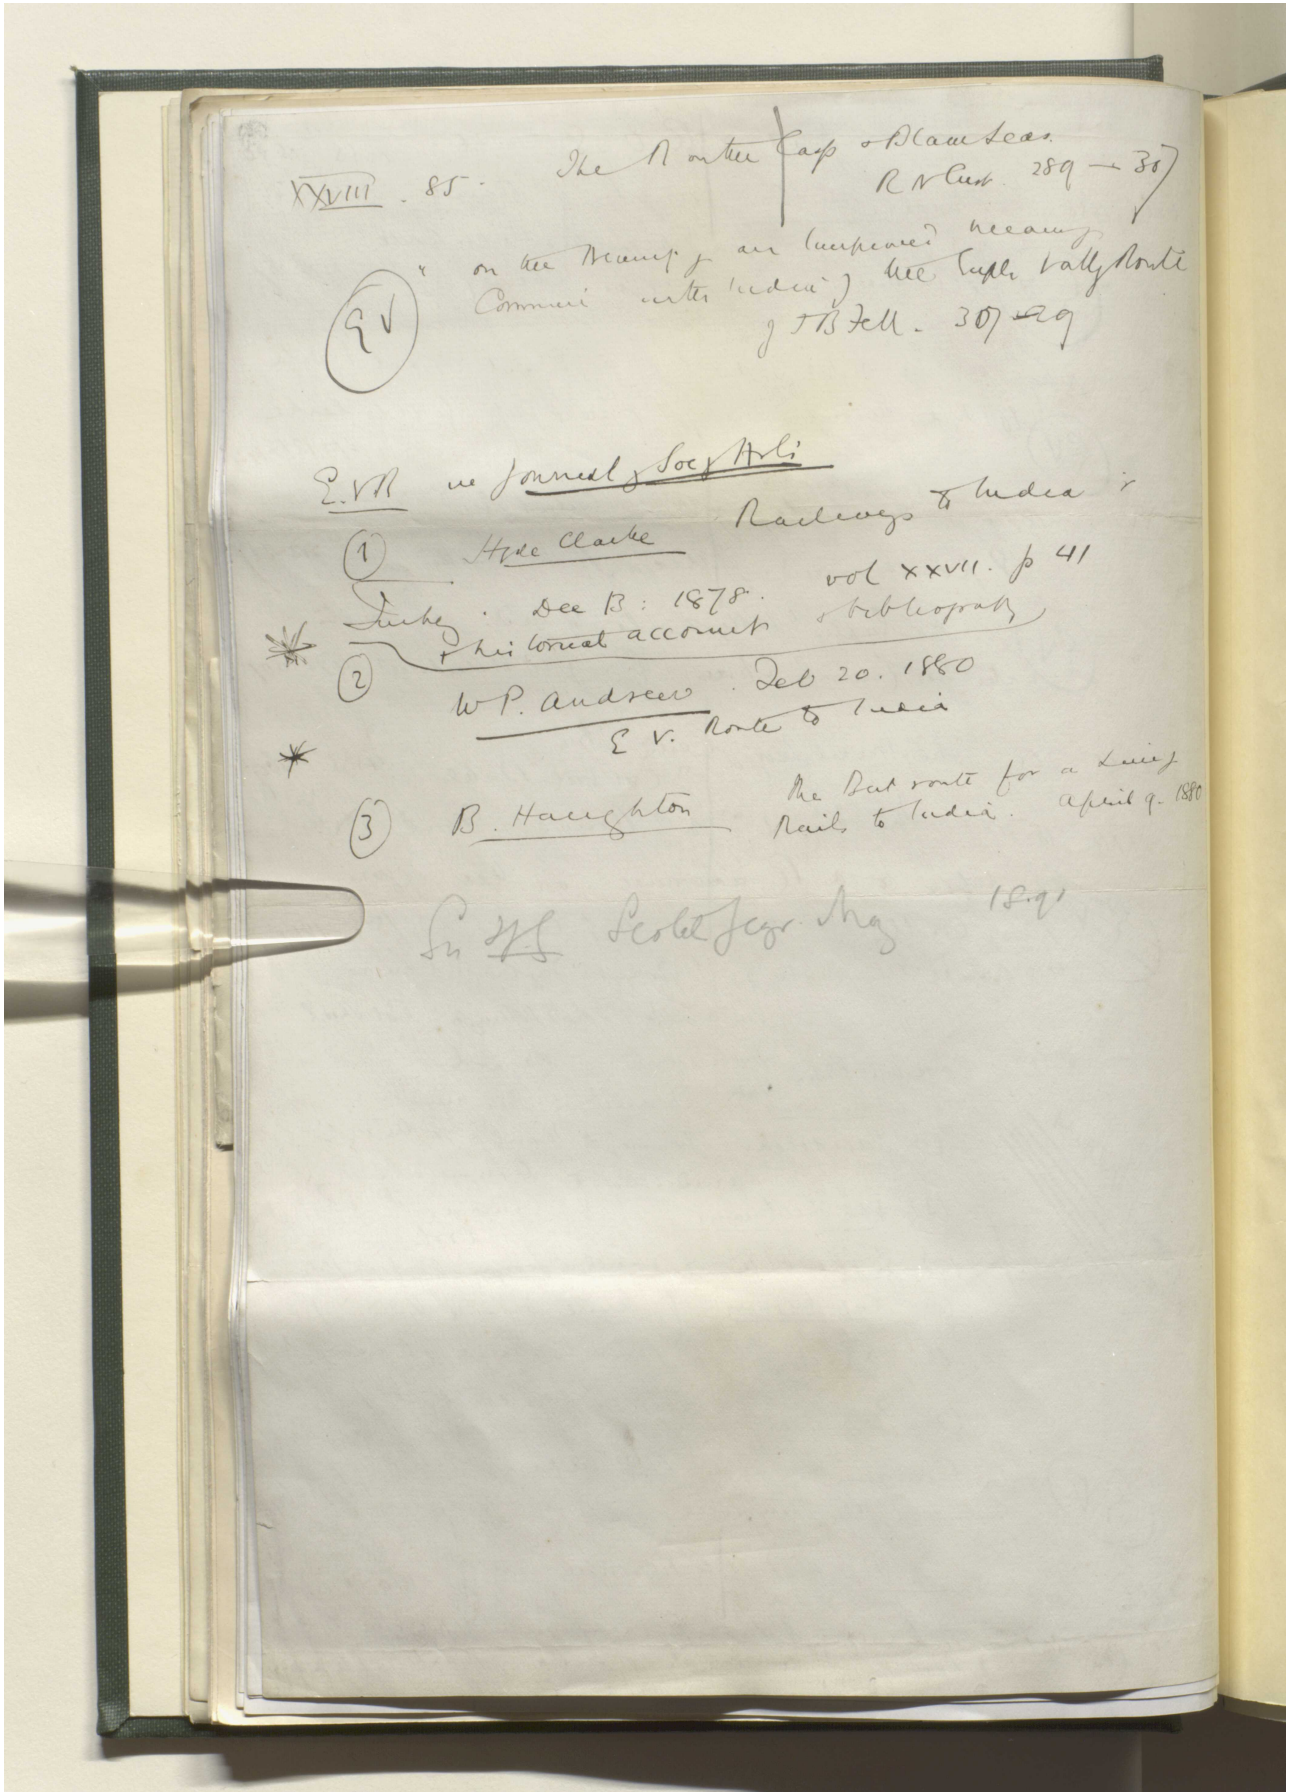 XXVIII . 85. The Route Casp & Black Seas.
R N Cust 289 – 307
EV " on the an improved
Commn with India by the Euph Vally Route
J B Fell . 307 – 29
E.V.R in Journal of Soc of Arts
① Hyde Clarke Railways to India &
Turkey . Dec 13 : 1878 . vol XXVII . p 41
+ historical account & bibliography
② W P. Andrew . Feb 20 . 1880
E V. Route to India
③ B. Haughton The Best route for a Line of
Rails to India . April 9 . 1880
Scott Geogr. Mag 1891